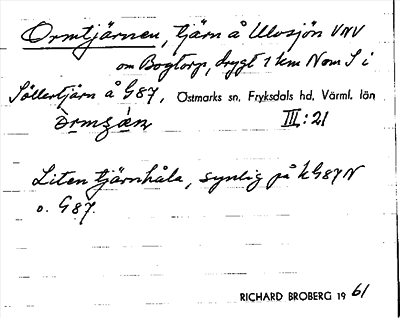 Ormtjärnen, tjärn å Ulvsjön VNV
om Bogtorp, drygt 1 km N om S i
Söllertjärn å G87, Östmarks sn, Fryksdals hd, Värml. län
III:21
Liten tjärnhåla, synlig på kG87N
o. G87.
RICHARD BROBERG 1961